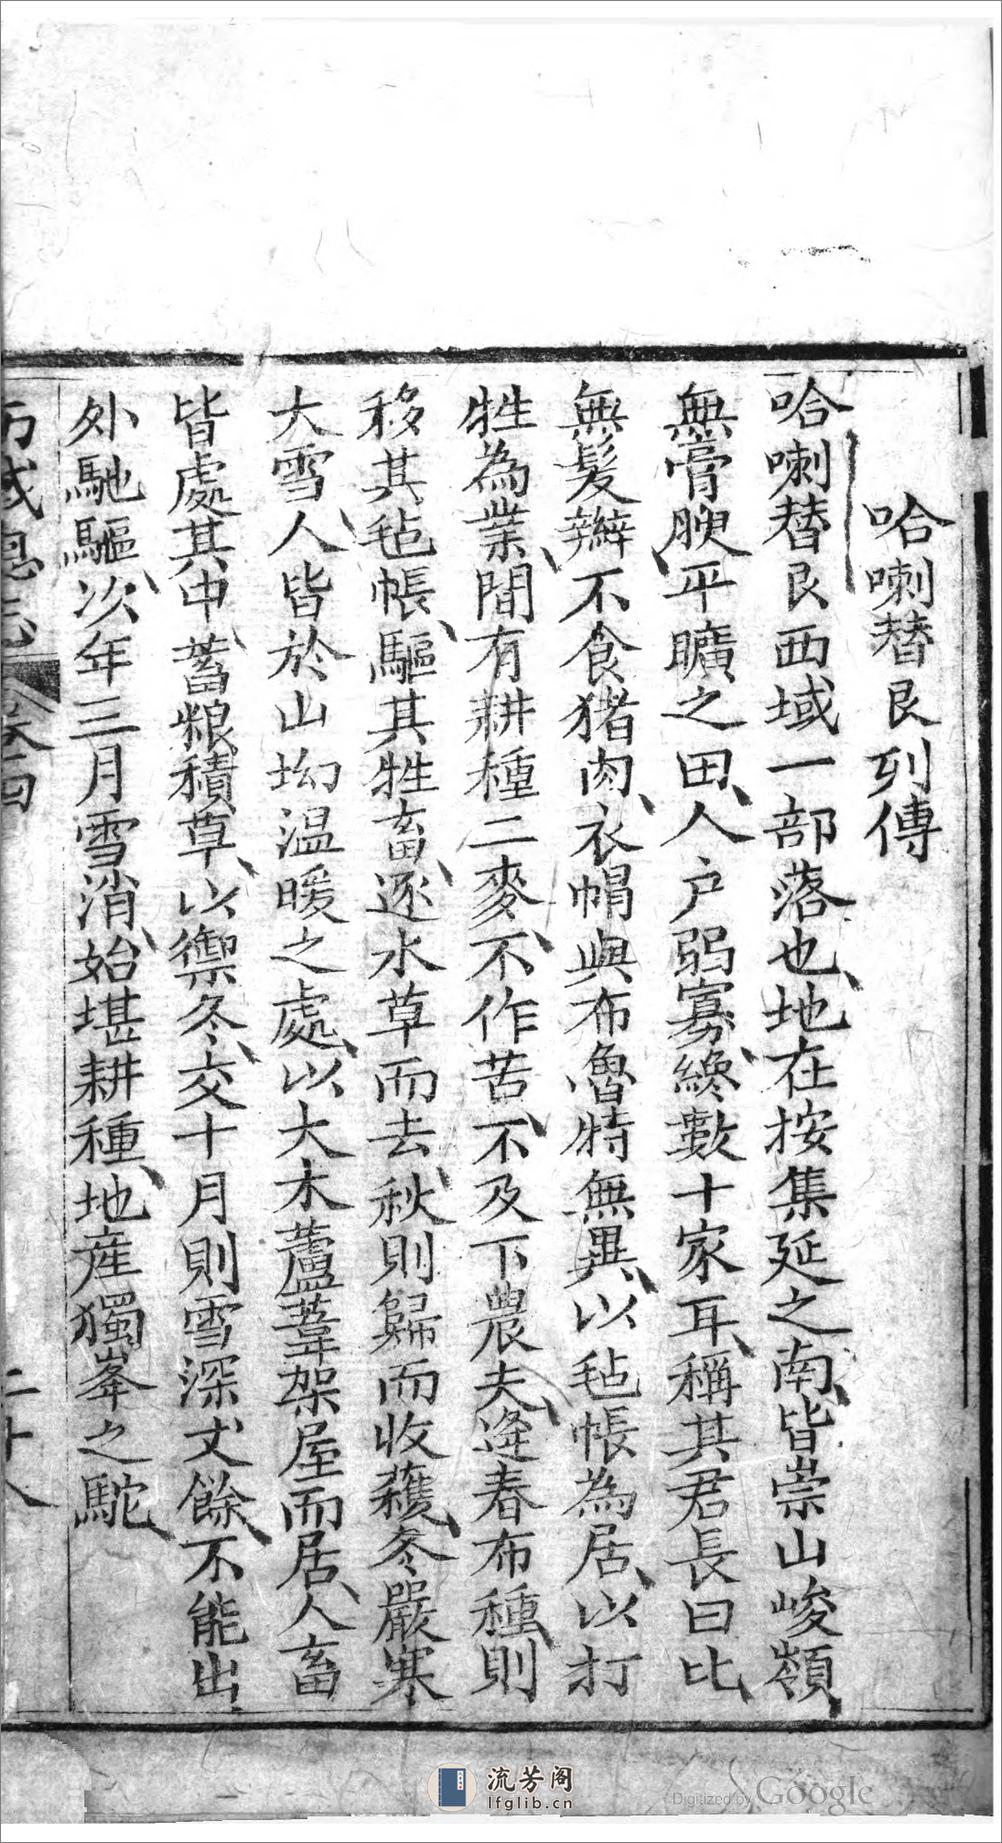 哈喇替艮列傳
哈喇替艮西域一部落也、地在按集延之南、皆崇山峻嶺
無膏腴、平曠之田、人户弱寡、纔數十家耳、稱其君長曰比、
無髮辮不食猪肉、衣帽與布魯特無異、以毡帳為居、以打
牲為業、間有耕種二麥、不作苦、不及下農夫、逢春布種、則
移其毡帳、驅其牲畜、逐水草而去、秋則歸而收穫、冬嚴寒
大雪、人皆於山坳温暖之處、以大木蘆葦架屋而居、人畜
皆處其中、蓄粮積草、以禦冬、交十月則雪深丈餘、不能出
外馳驅、次年三月雪消、始堪耕種、地産獨峯之駝、
二十八
流芳阁
lfglib.cn
Digitized by Google